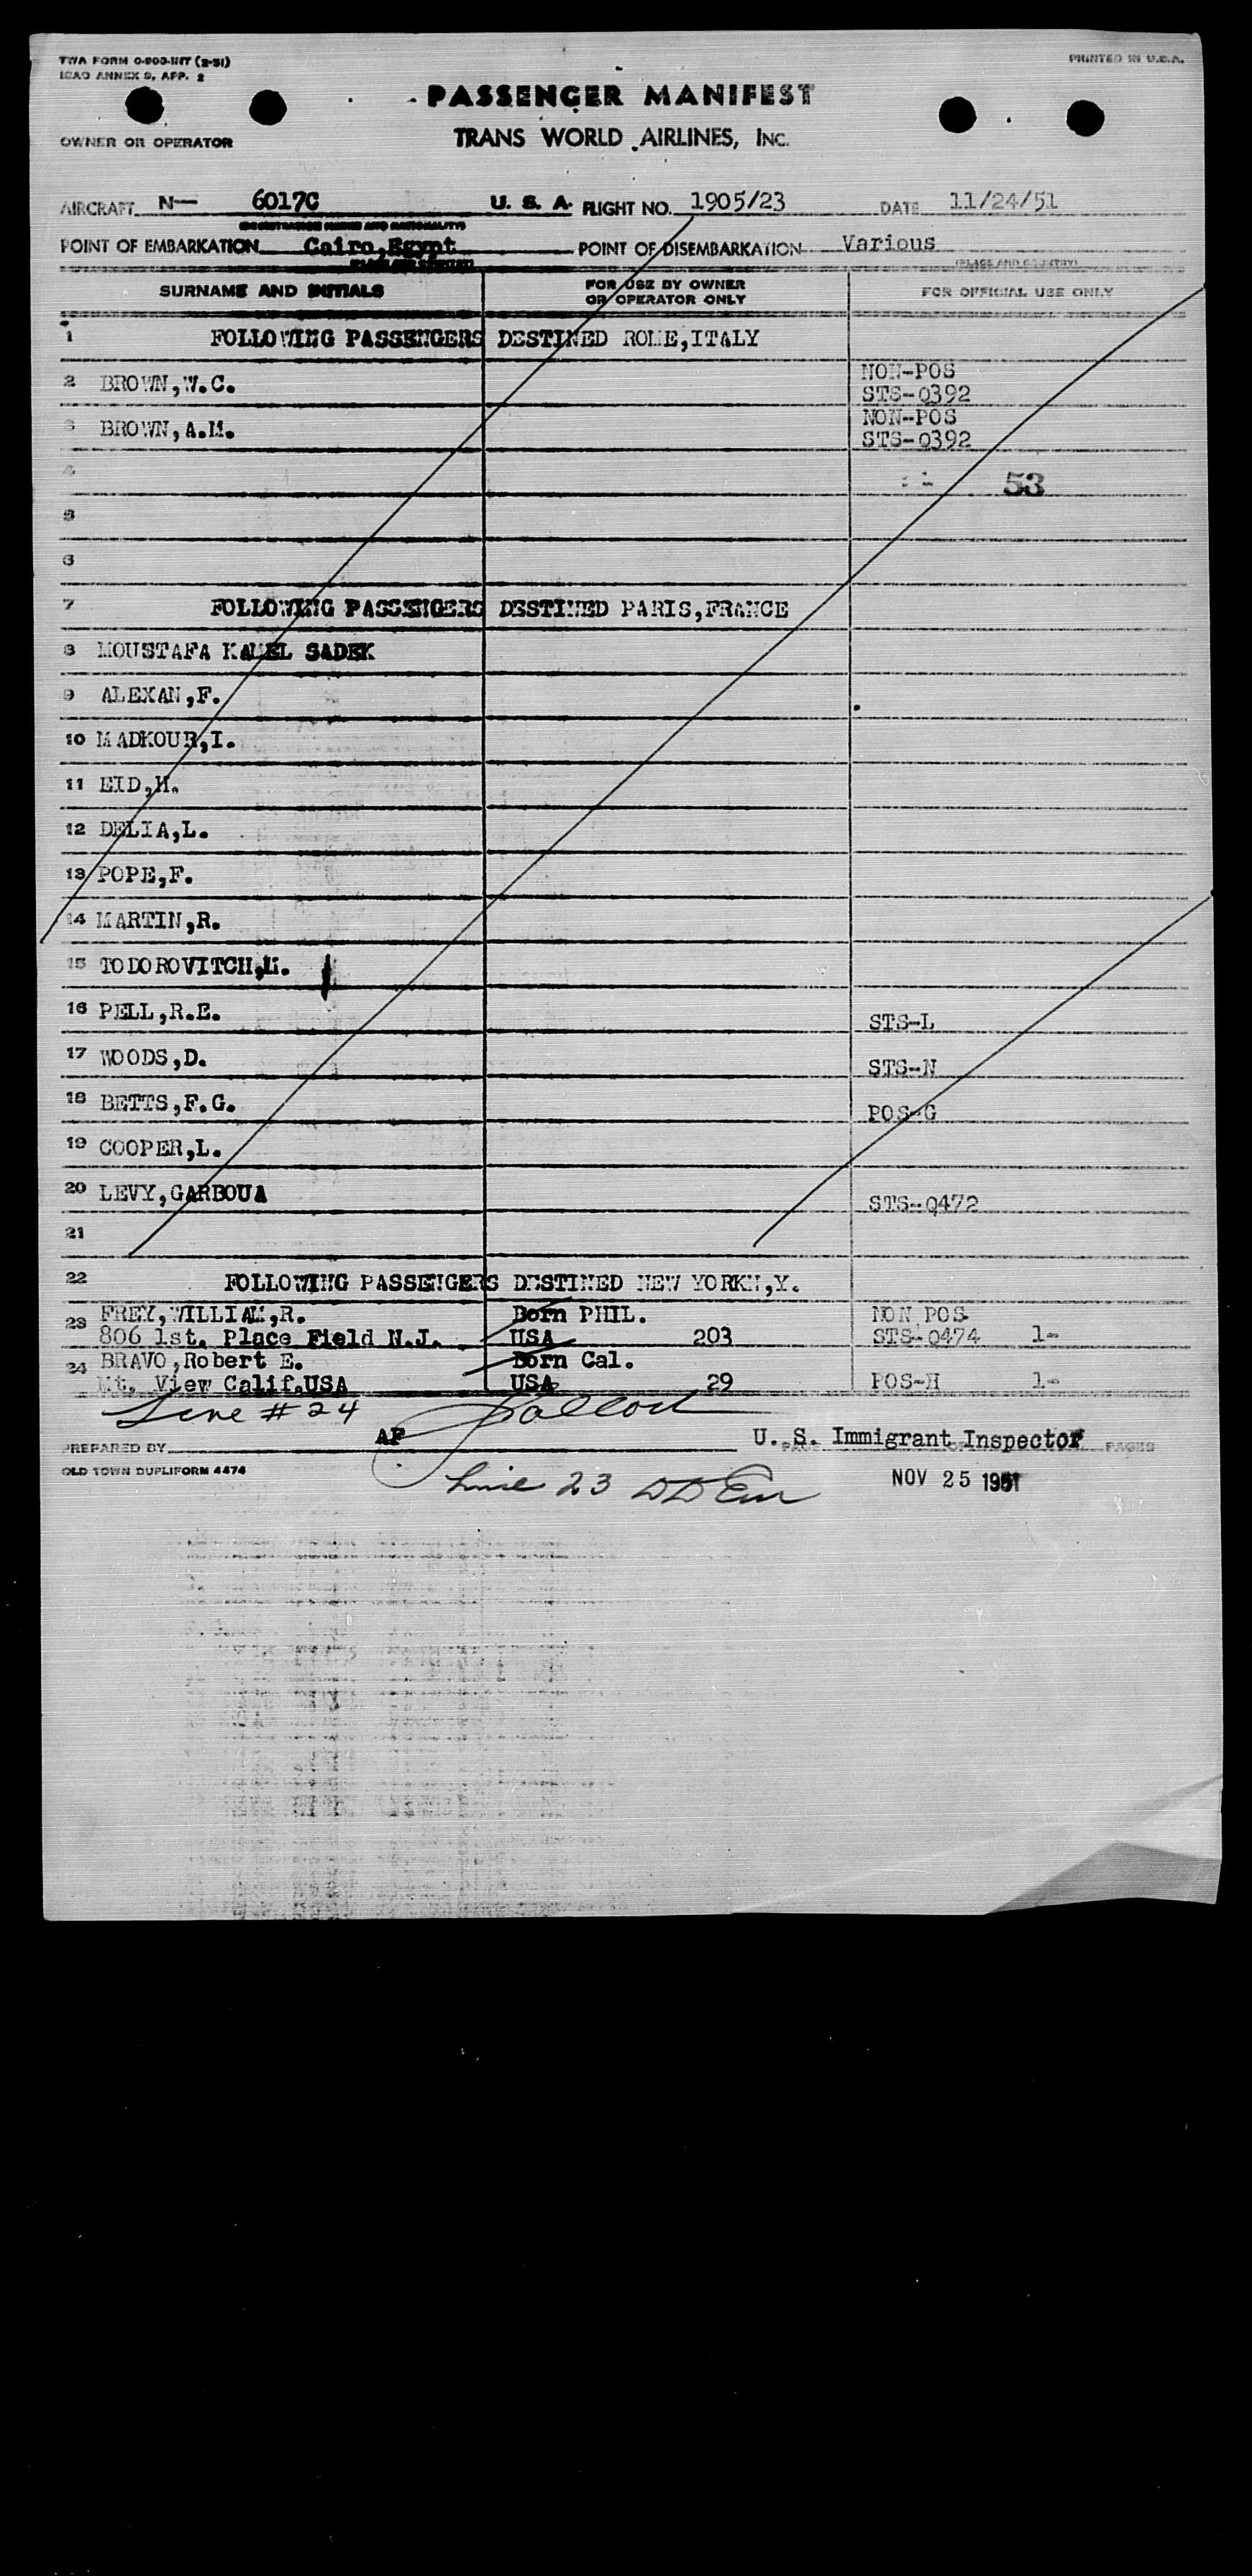 TWA FORM O-800-INT (2-51)
ICAO ANNEX 9, APP. 2
PRINTED IN U.S.A.
PASSENGER MANIFEST
OWNER OR OPERATOR
TRANS WORLD AIRLINES, INC.
AIRCRAFT N— 6017C U. S. A. FLIGHT NO. 1905/23 DATE 11/24/51
(REGISTRATION MARKS AND NATIONALITY)
POINT OF EMBARKATION Cairo,Egypt POINT OF DISEMBARKATION Various
(PLACE AND COUNTRY) (PLACE AND COUNTRY)
SURNAME AND INITIALS FOR USE BY OWNER OR OPERATOR ONLY FOR OFFICIAL USE ONLY
1 FOLLOWING PASSENGERS DESTINED ROME,ITALY
2 BROWN,W.C. NON-POS
STS-Q392
3 BROWN,A.M. NON-POS
STS-Q392
4 53
5
6
7 FOLLOWING PASSENGERS DESTINED PARIS,FRANCE
8 MOUSTAFA KAMEL SADEK
9 ALEXAN,F.
10 MADKOUR,I.
11 EID,H.
12 DELIA,L.
13 POPE,F.
14 MARTIN,R.
15 TODOROVITCH,M.
16 PELL,R.E. STS-L
17 WOODS,D. STS-N
18 BETTS,F.G. POS-G
19 COOPER,L.
20 LEVY,GARBOUA STS-Q472
21
22 FOLLOWING PASSENGERS DESTINED NEW YORKN,Y.
23 FREY,WILLIAM,R. Born PHIL. NON POS
806 1st. Place Field N.J. USA 203 STS-Q474 1-
24 BRAVO,Robert E. Born Cal.
Mt. View Calif.USA USA 29 POS-H 1-
Line # 24
PREPARED BY AF U. S. Immigrant Inspector PAGES
OLD TOWN DUPLIFORM 4474
Line 23 NOV 25 1951